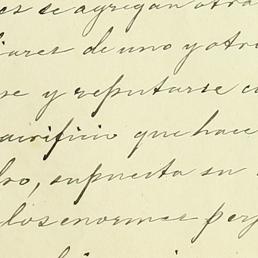 es se agregan otra
iares de uno y otro
se y reputarse co
sacrificio que hace
dro, supuesta su
los enormes perj